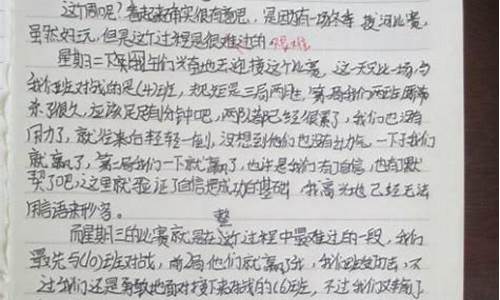 这个周呢?看起来确实很有意思,是因为有一场冬季拔河比赛,
虽然好玩,但是这个过程是很难过的 艰难
星期二下午同学们兴奋地去迎接这个比赛,这一天只比一场与
我们班对战的是(4)班,规矩是三局两胜,第一局我们两班
来了很久,应该足足有1分钟吧,两队都已经很累了,我们也没有
力了,就 轻轻一 ,没想到他们也没有力气,一下子我们
就赢了,第二局我们一下就赢了,也许是我们有了自信,也有了默
契了吧,这里就验证了自信是成功的基础,我高兴地已经无法
用言语来形容。 整
而星期三的比赛就是在这个过程中最难过的一段,我们
最先与(10)班对战,前2局他们就赢了我,我们 ,不
过我们还是勇敢地面对接下来对战的(6)班,不过我们又输了